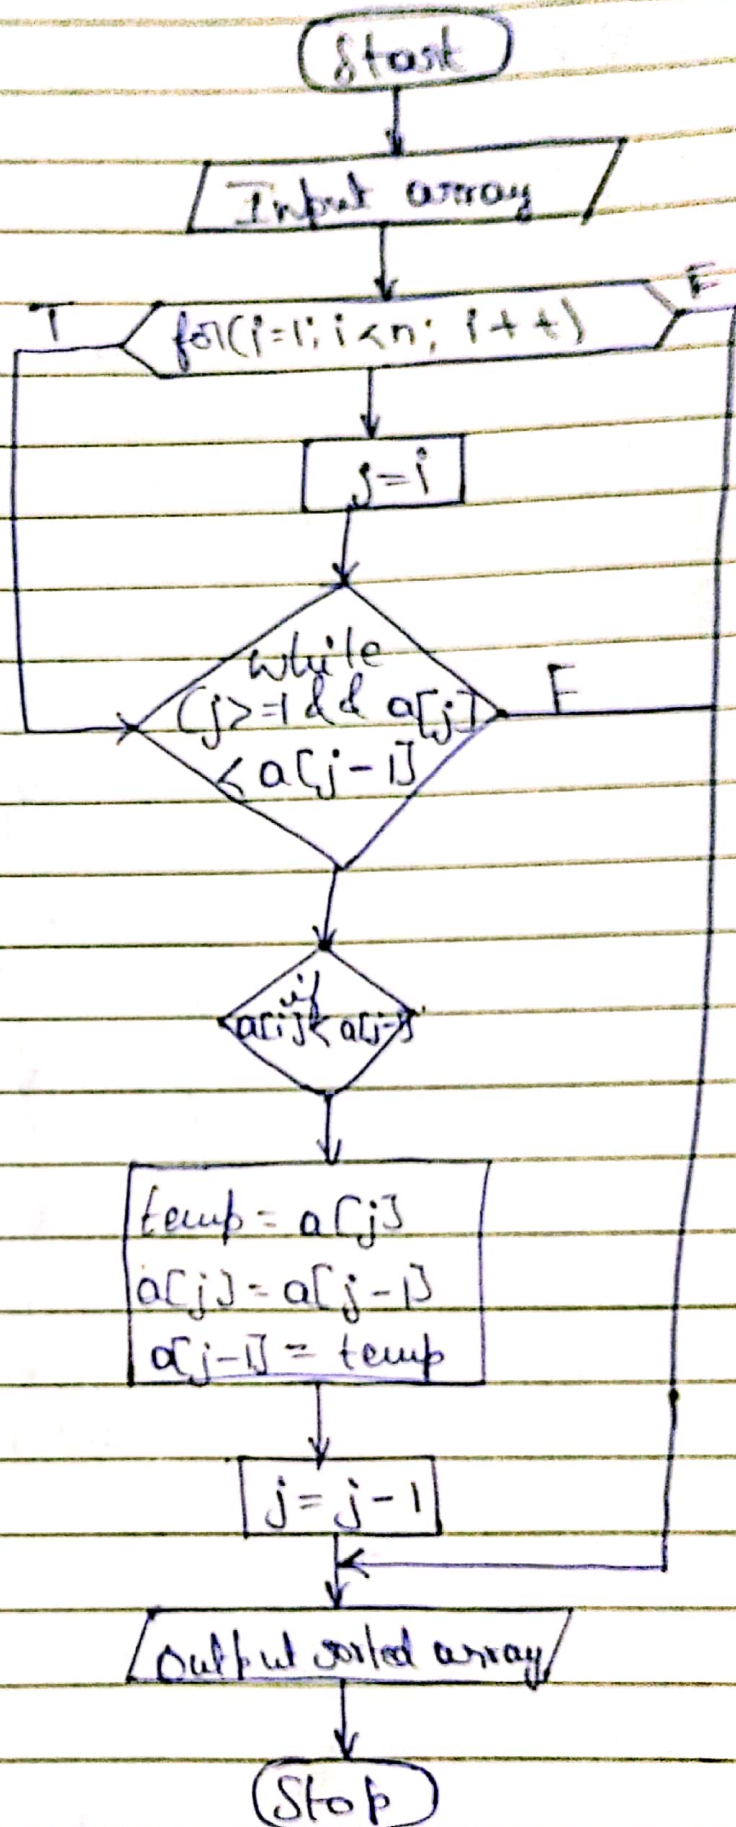 Start
Input array
T
F
for(i=1; i<n; i++)
j=i
while
(j>=1 && a[j]
< a[j-1]
F
if
a[j]< a[j-1]
temp = a[j]
a[j] = a[j-1]
a[j-1] = temp
j = j-1
Output sorted array
Stop